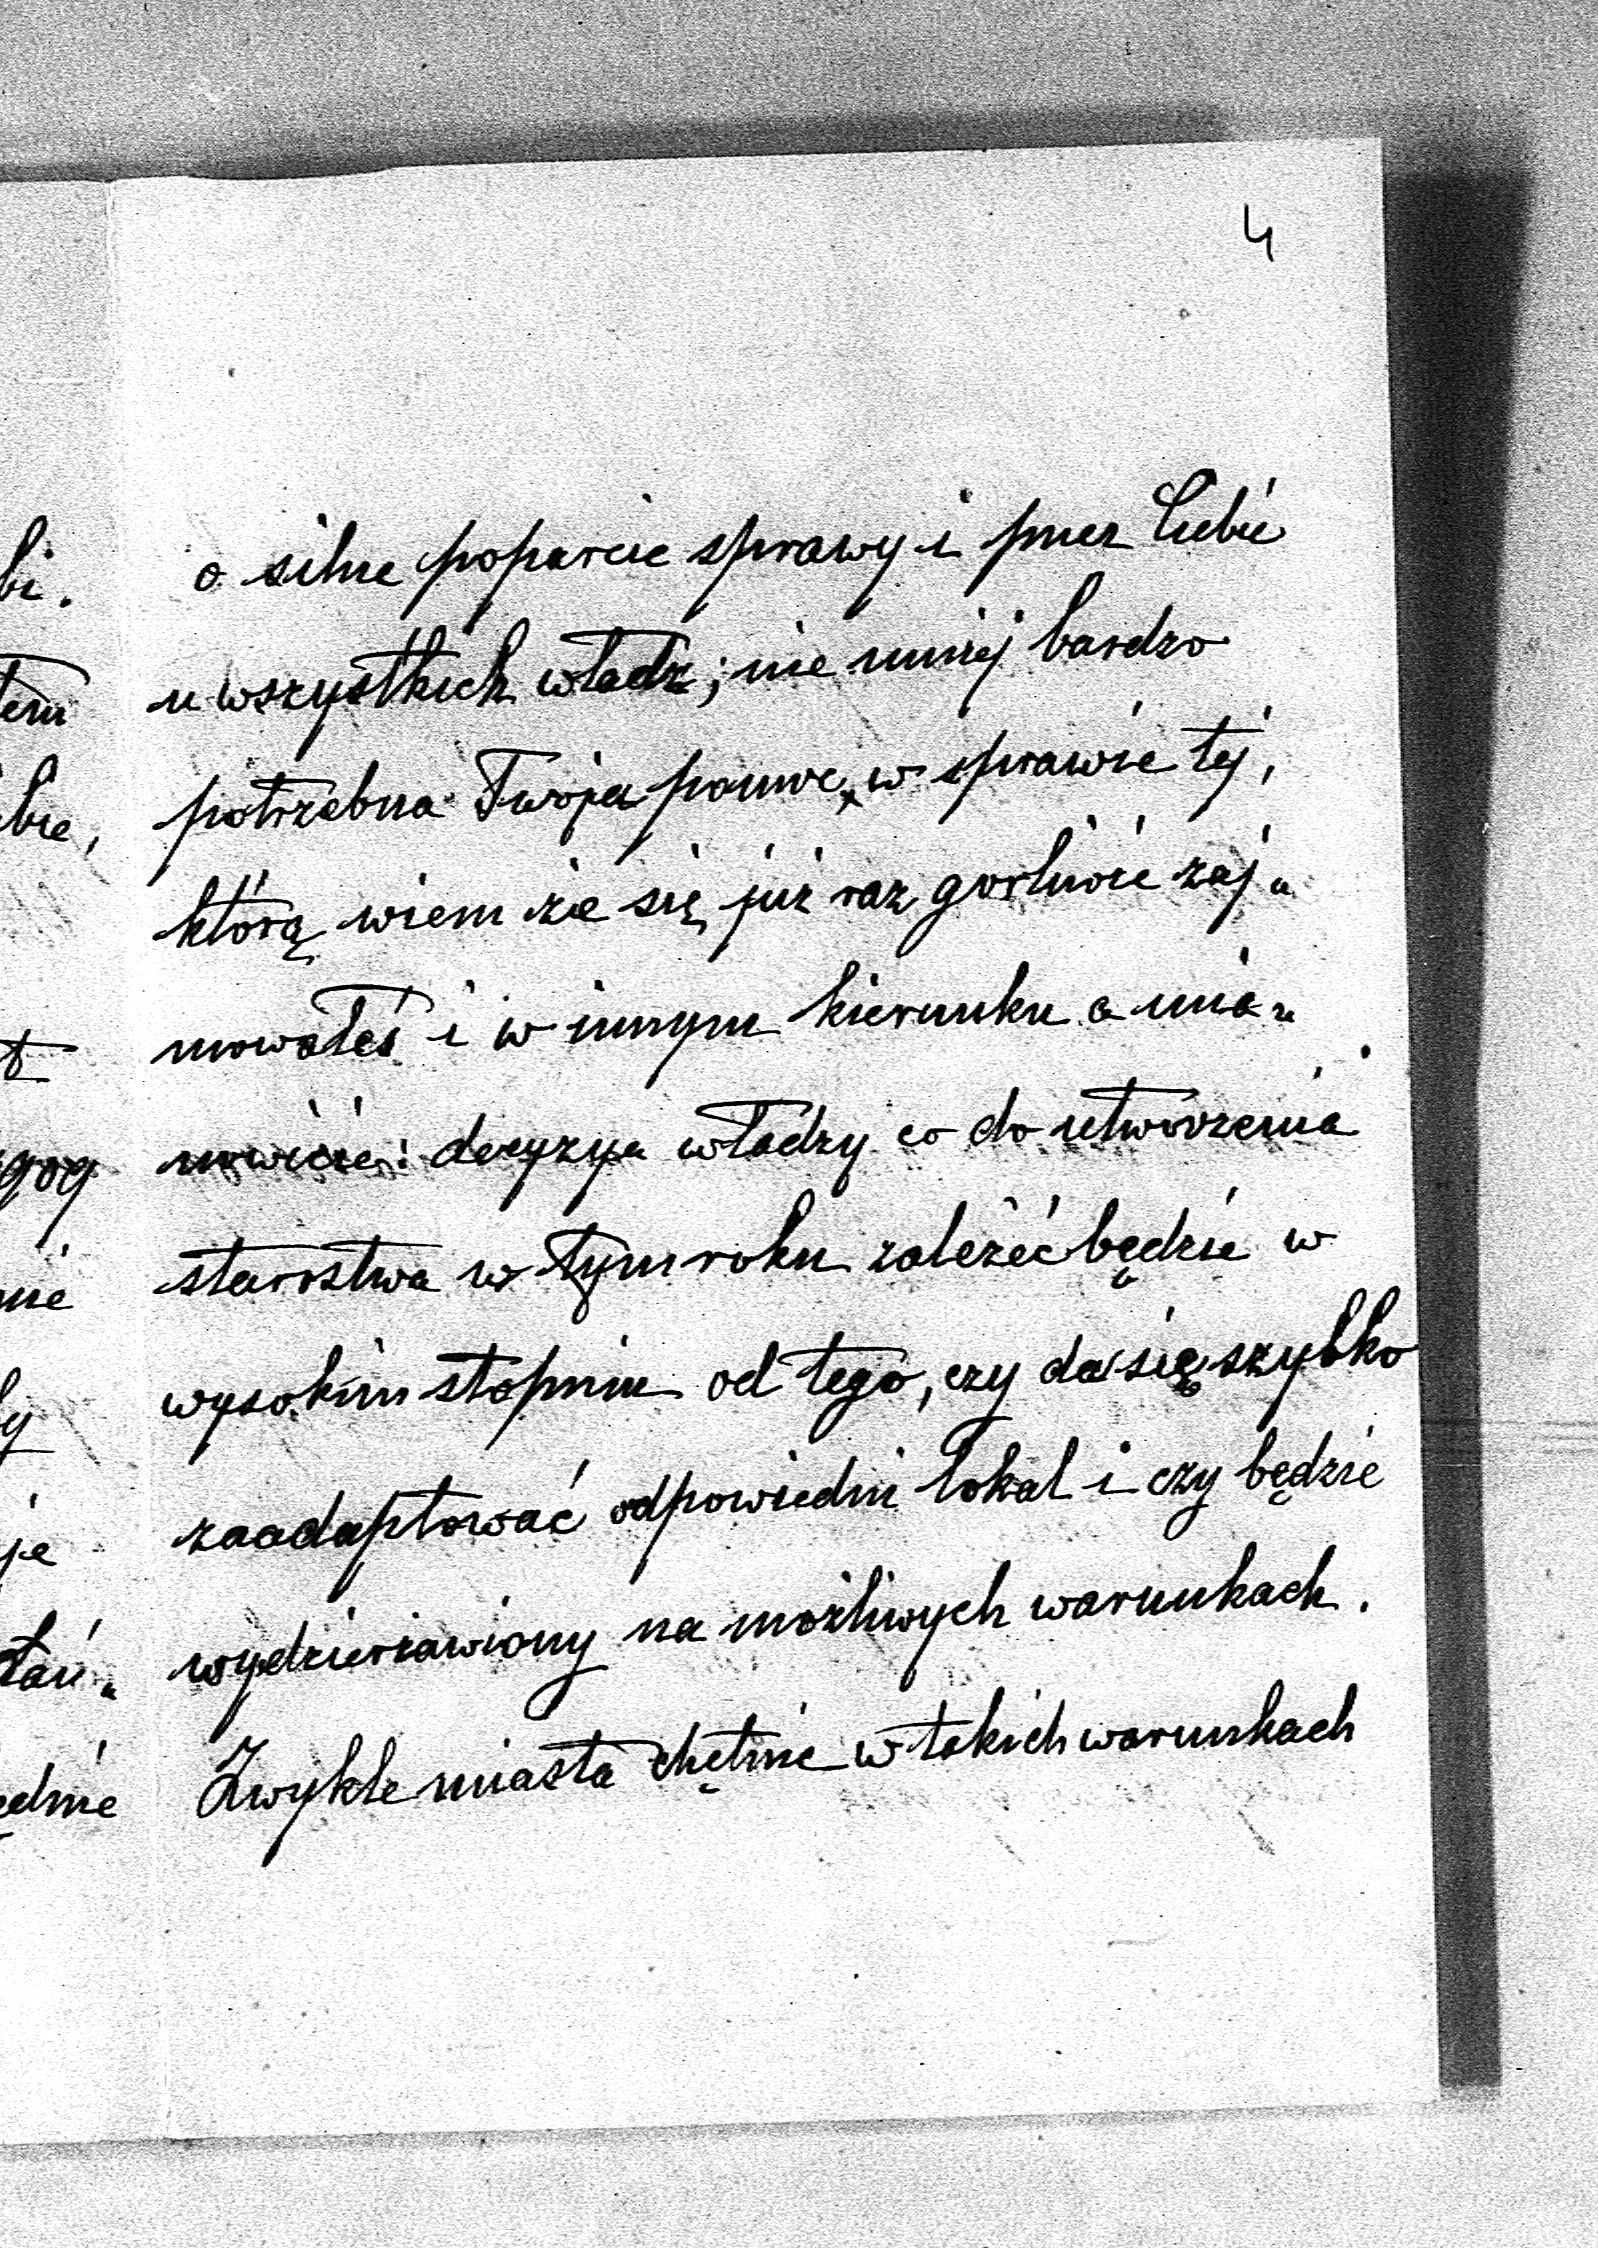 4
o silne poparcie sprawy i przez Ciebie
u wszystkich władz; nie mniej bardzo
potrzebna Twoja pomoc w sprawie tej,
którą wiem że się już raz gorliwie zaj„
mowałeś i w innym kierunku a mia„
nowicie: decyzya władzy co do utworzenia
starostwa w tym roku zależeć będzie w
wysokim stopniu od tego, czy da się szybko
zaadaptować odpowiedni lokal i czy będzie
wydzierżawiony na możliwych warunkach.
Zwykle miasta chętnie w takich warunkach